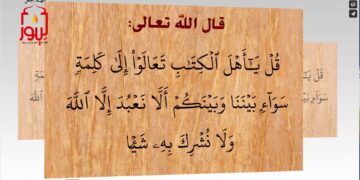 قال الله تعالى:
قُلْ يَـٰٓأَهْلَ ٱلْكِتَـٰبِ تَعَالَوْا۟ إِلَىٰ كَلِمَةٍۢ
سَوَآءٍۭ بَيْنَنَا وَبَيْنَكُمْ أَلَّا نَعْبُدَ إِلَّا ٱللَّهَ
وَلَا نُشْرِكَ بِهِۦ شَيْـًۭٔا